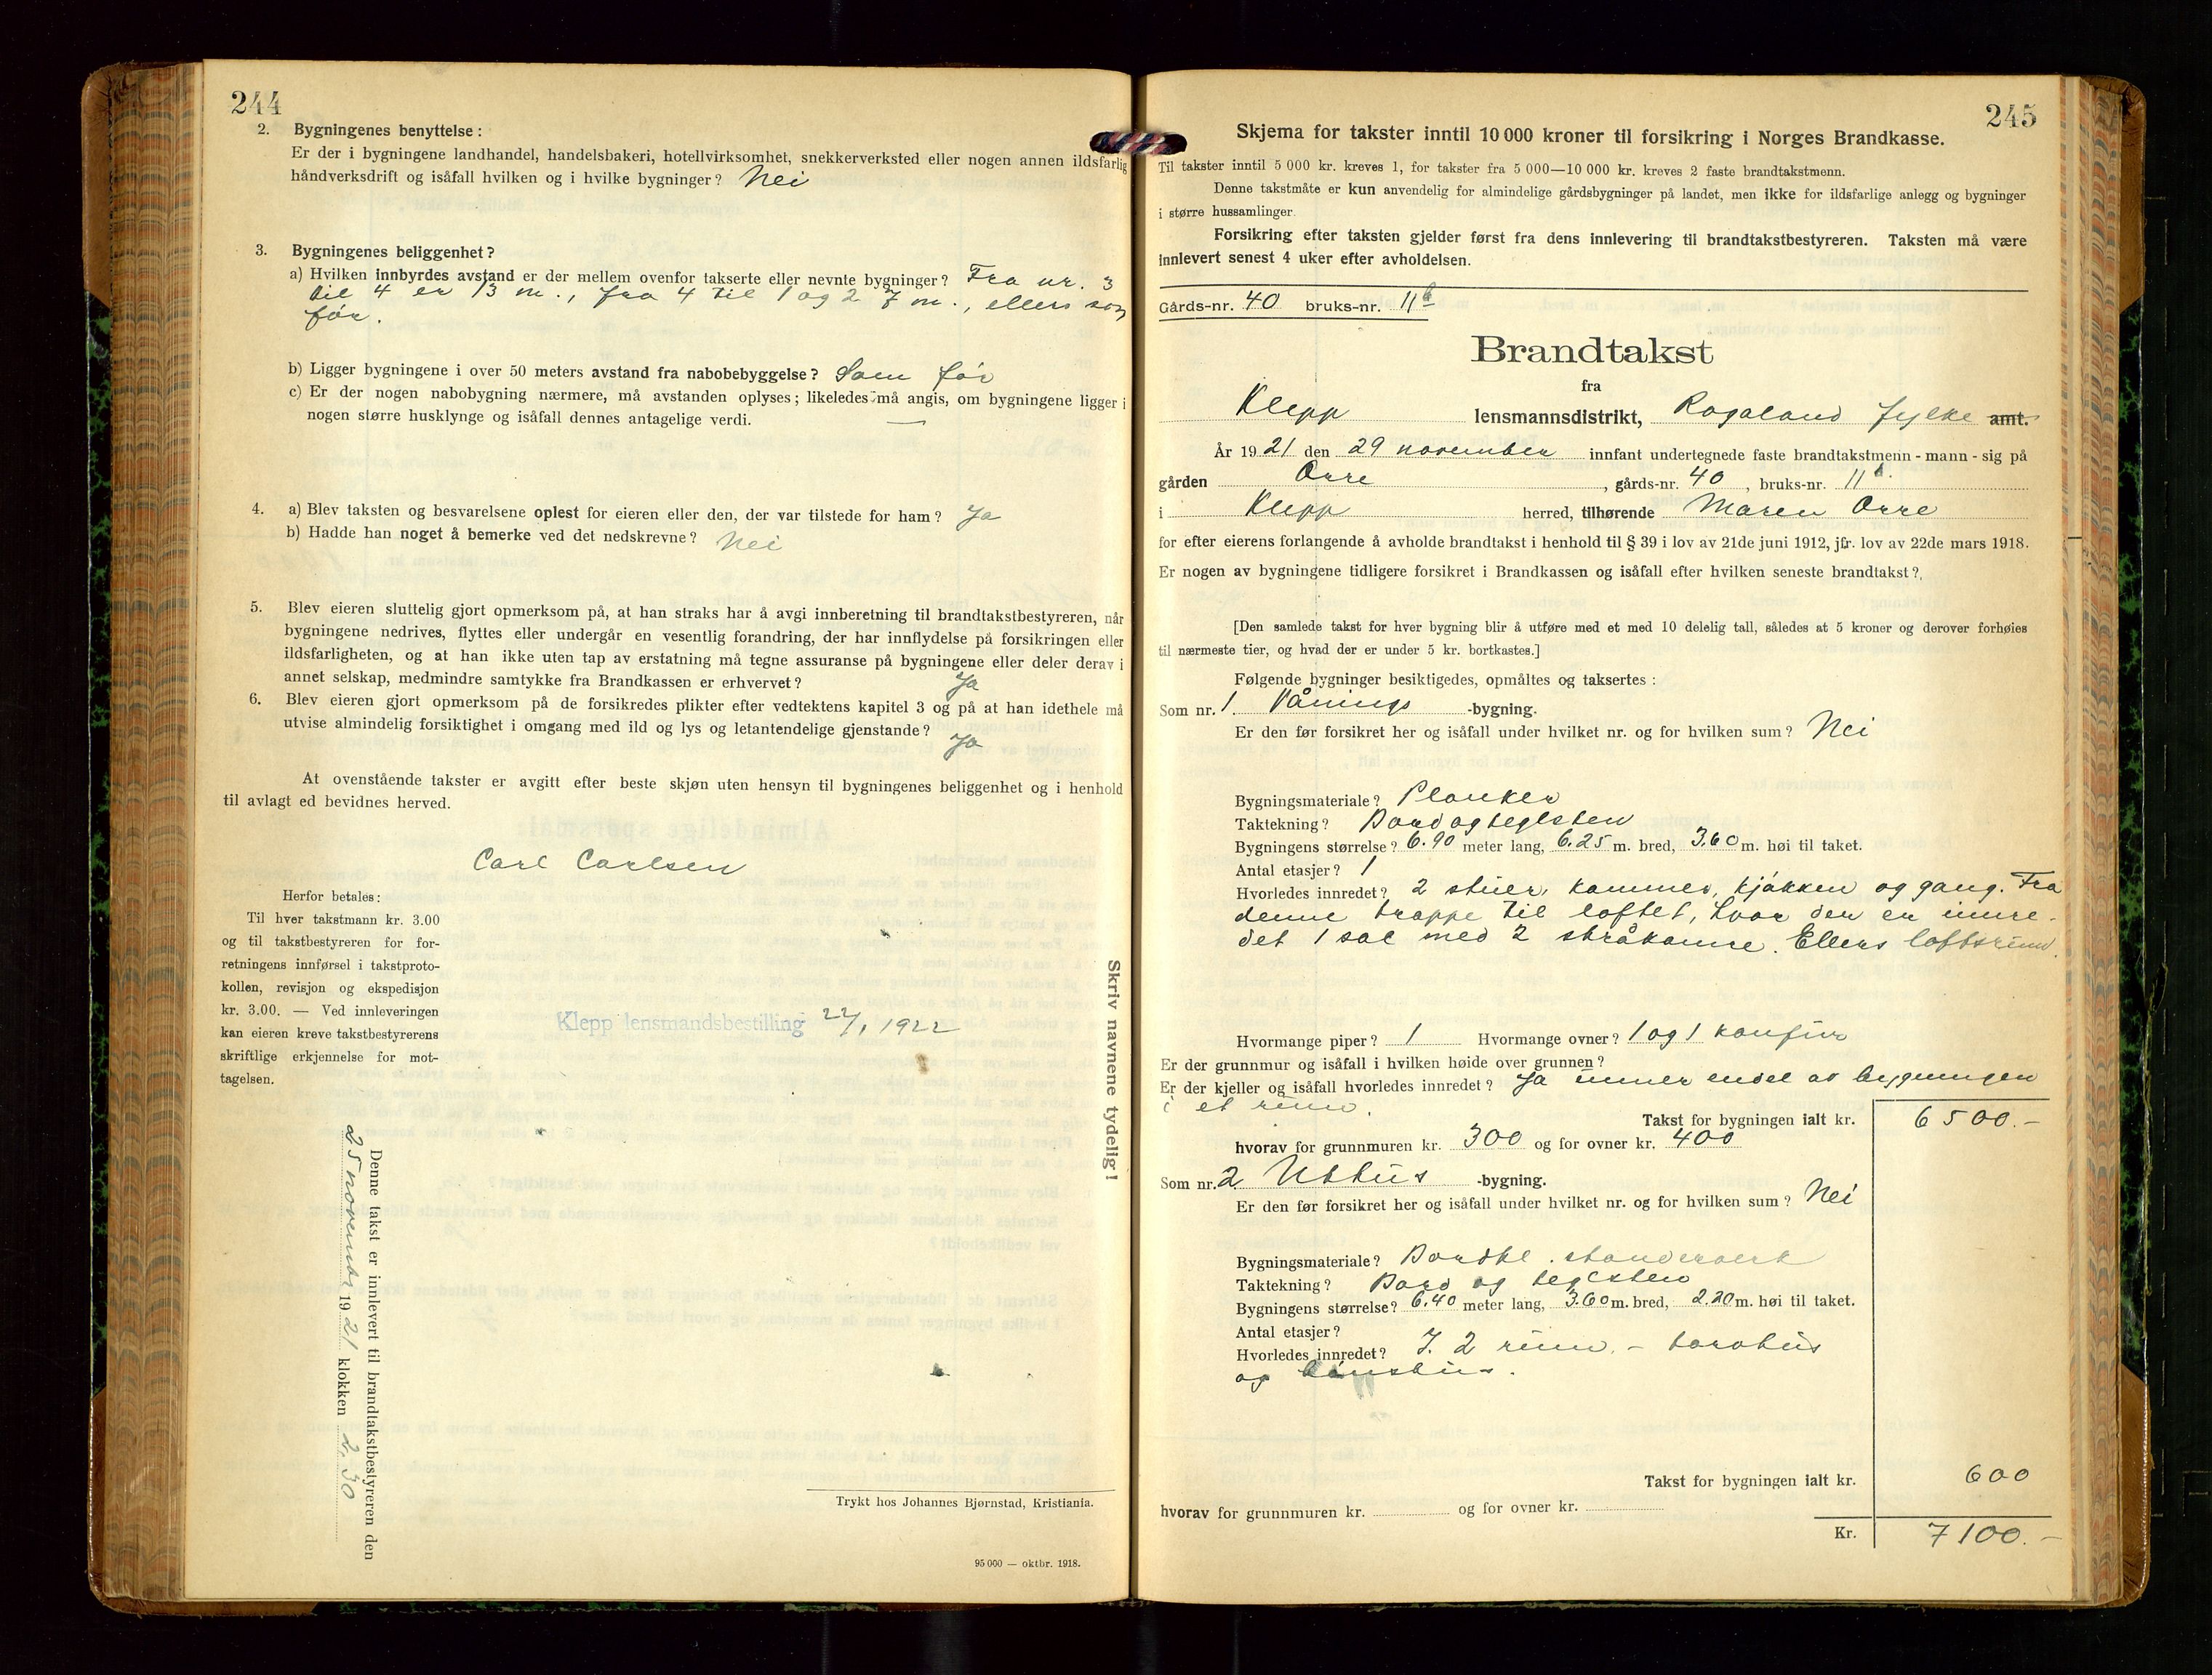 244
2. Bygningenes benyttelse:
Er der i bygningene landhandel, handelsbakeri, hotellvirksomhet, snekkerverksted eller nogen annen ildsfarlig
håndverksdrift og isåfall hvilken og i hvilke bygninger? Nei
3. Bygningenes beliggenhet?
a) Hvilken innbyrdes avstand er der mellem ovenfor takserte eller nevnte bygninger? Fra nr. 3
til 4 er 13 m., fra 4 til 1 og 2 7 m., ellers som
før.
b) Ligger bygningene i over 50 meters avstand fra nabobebyggelse? Som før
c) Er der nogen nabobygning nærmere, må avstanden oplyses; likeledes må angis, om bygningene ligger i
nogen større husklynge og isåfall dennes antagelige verdi. —
4. a) Blev taksten og besvarelsene oplest for eieren eller den, der var tilstede for ham? Ja
b) Hadde han noget å bemerke ved det nedskrevne? Nei
5. Blev eieren sluttelig gjort opmerksom på, at han straks har å avgi innberetning til brandtakstbestyreren, når
bygningene nedrives, flyttes eller undergår en vesentlig forandring, der har innflydelse på forsikringen eller
ildsfarligheten, og at han ikke uten tap av erstatning må tegne assuranse på bygningene eller deler derav i
annet selskap, medmindre samtykke fra Brandkassen er erhvervet? Ja
6. Blev eieren gjort opmerksom på de forsikredes plikter efter vedtektens kapitel 3 og på at han idethele må
utvise almindelig forsiktighet i omgang med ild og lys og letantendelige gjenstande? Ja
At ovenstående takster er avgitt efter beste skjøn uten hensyn til bygningenes beliggenhet og i henhold
til avlagt ed bevidnes herved.
Carl Carlsen
Herfor betales:
Til hver takstmann kr. 3.00
og til takstbestyreren for for-
retningens innførsel i takstproto-
kollen, revisjon og ekspedisjon
kr. 3.00. — Ved innleveringen
kan eieren kreve takstbestyrerens
skriftlige erkjennelse for mot-
tagelsen.
Klepp lensmandsbestilling 27/1 1922
Denne takst er innlevert til brandtakstbestyreren den
25 november 1921 klokken 2,30
Skriv navnene tydelig!
Trykt hos Johannes Bjørnstad, Kristiania.
95 000 — oktbr. 1918.
245
Skjema for takster inntil 10 000 kroner til forsikring i Norges Brandkasse.
Til takster inntil 5 000 kr. kreves 1, for takster fra 5 000—10 000 kr. kreves 2 faste brandtakstmenn.
Denne takstmåte er kun anvendelig for almindelige gårdsbygninger på landet, men ikke for ildsfarlige anlegg og bygninger
i større hussamlinger.
Forsikring efter taksten gjelder først fra dens innlevering til brandtakstbestyreren. Taksten må være
innlevert senest 4 uker efter avholdelsen.
Gårds-nr. 40 bruks-nr. 11b
Brandtakst
fra
Klepp lensmannsdistrikt, Rogaland fylke amt.
År 1921 den 29 november innfant undertegnede faste brandtakstmenn - mann - sig på
gården Orre, gårds-nr. 40, bruks-nr. 11b.
i Klepp herred, tilhørende Maren Orre
for efter eierens forlangende å avholde brandtakst i henhold til § 39 i lov av 21de juni 1912, jfr. lov av 22de mars 1918.
Er nogen av bygningene tidligere forsikret i Brandkassen og isåfall efter hvilken seneste brandtakst?
[Den samlede takst for hver bygning blir å utføre med et med 10 delelig tall, således at 5 kroner og derover forhøies
til nærmeste tier, og hvad der er under 5 kr. bortkastes.]
Følgende bygninger besiktigedes, opmåltes og taksertes:
Som nr. 1. Vånings -bygning.
Er den før forsikret her og isåfall under hvilket nr. og for hvilken sum? Nei
Bygningsmateriale? Planker
Taktekning? Bord og teglsten
Bygningens størrelse? 6.90 meter lang, 6.25 m. bred, 3.60 m. høi til taket.
Antal etasjer? 1
Hvorledes innredet? 2 stuer, kammer, kjøkken og gang. Fra
denne trappe til loftet, hvor der er innre-
det 1 sal med 2 stråkamre. Ellers loftsrum.
Hvormange piper? 1 Hvormange ovner? 1 og 1 komfur
Er der grunnmur og isåfall i hvilken høide over grunnen?
Er der kjeller og isåfall hvorledes innredet? Ja under endel av bygningen
i et rum.
Takst for bygningen ialt kr. 6500.-
hvorav for grunnmuren kr. 300 og for ovner kr. 400
Som nr. 2. Uthus -bygning.
Er den før forsikret her og isåfall under hvilket nr. og for hvilken sum? Nei
Bygningsmateriale? Bordkl. standerverk
Taktekning? Bord og teglsten
Bygningens størrelse? 6.40 meter lang, 3.60 m. bred, 2.20 m. høi til taket.
Antal etasjer?
Hvorledes innredet? I 2 rum. - torvhus
og hønshus.
Takst for bygningen ialt kr. 600
hvorav for grunnmuren kr. og for ovner kr.
Kr. 7100.-